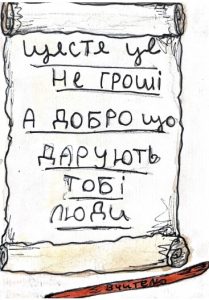 щастє це
НЕ ГРОШІ
А ДОБРО що
ДАРУЮТЬ
ТОБІ
ЛЮДИ
вчителя